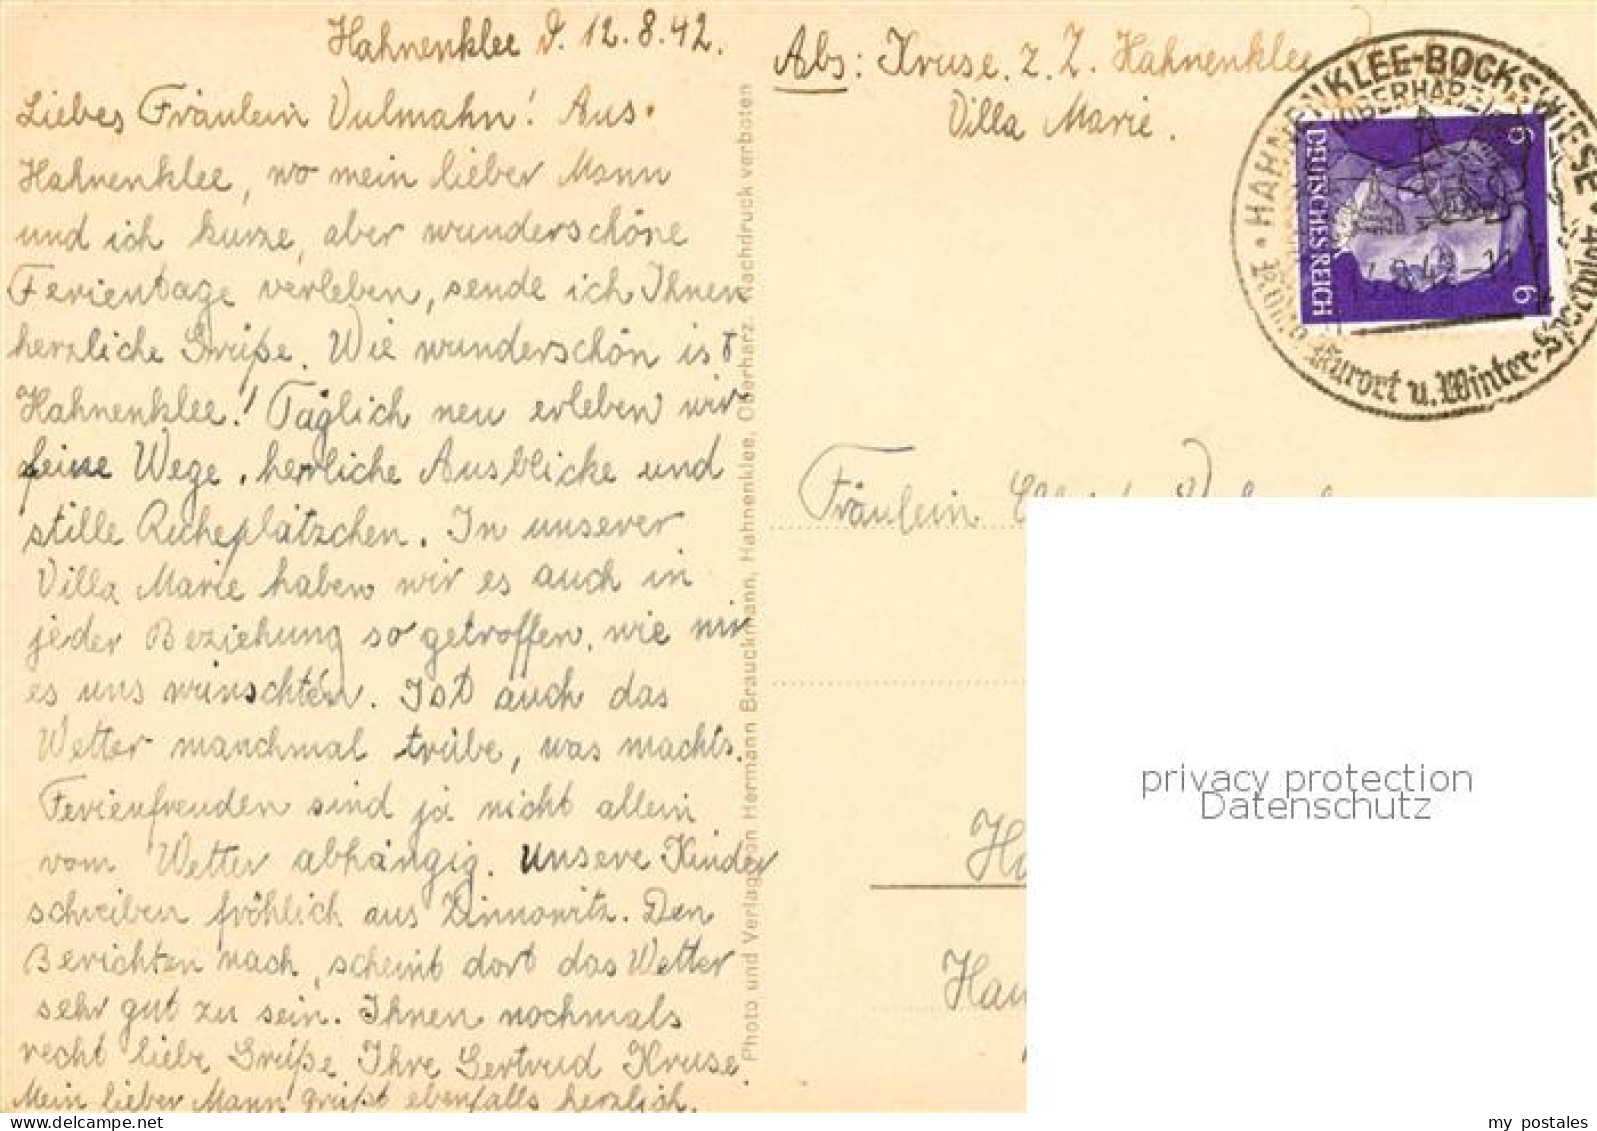 Hahnenklee d. 12.8.42.
Liebes Fräulein Vulmahn! Aus
Hahnenklee, wo mein lieber Mann
und ich kurze, aber wunderschöne
Ferientage verleben, sende ich Ihnen
herzliche Grüße. Wie wunderschön ist
Hahnenklee! Täglich neu erleben wir
feine Wege, herrliche Ausblicke und
stille Ruheplätzchen. In unserer
Villa Marie haben wir es auch in
jeder Beziehung so getroffen, wie wir
es uns wünschten. Ist auch das
Wetter manchmal trübe, was machts.
Ferienfreuden sind ja nicht allein
vom Wetter abhängig. Unsere Kinder
schreiben fröhlich aus Zinnowitz. Den
Berichten nach, scheint dort das Wetter
sehr gut zu sein. Ihnen nochmals
recht liebe Grüße Ihre Gertrud Kruse
Mein lieber Mann grüßt ebenfalls herzlich.
Photo und Verlag von Hermann Brauckmann, Hahnenklee, Oberharz. Nachdruck verboten
Abs: Kruse. z. Z. Hahnenklee
Villa Marie.
HAHNENKLEE-BOCKSWIESE
(OBERHARZ)
Kurort u. Winter-Sportplatz
DEUTSCHES REICH
6 6
Fräulein
privacy protection
Datenschutz
delcampe.net
my_postales